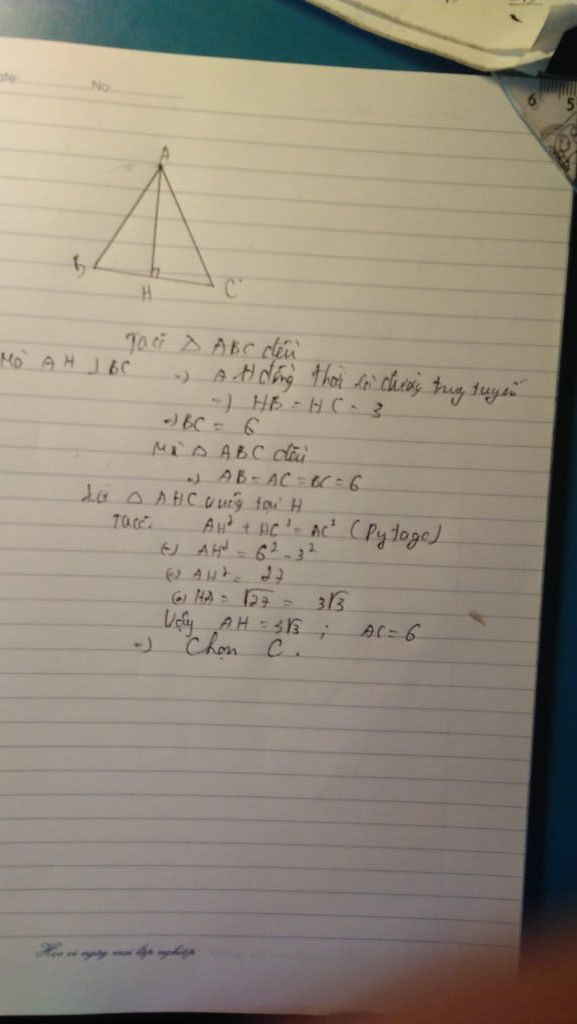 6 5
ate: No:
A
B H C
Ta có △ ABC đều
Mà AH ⊥ BC -) AH đồng thời là đường trung tuyến
-) HB = HC = 3
-) BC = 6
Mà △ ABC đều
-) AB = AC = BC = 6
Xét △ AHC vuông tại H
Ta có: AH² + HC² = AC² (Pytago)
(-) AH² = 6² - 3²
(-) AH² = 27
(-) HA = √27 = 3√3
Vậy AH = 3√3 ; AC = 6
-) Chọn C.
Học vì ngày mai lập nghiệp